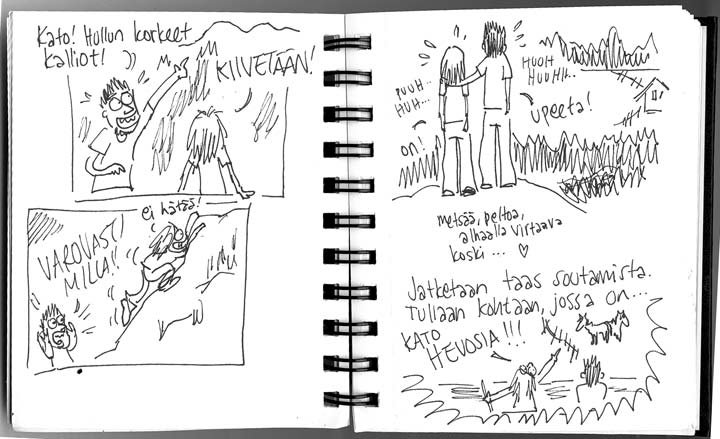 Kato! Hullun korkeet
kalliot!
KIIVETÄÄN!
ei hätää!
VAROVASTI
MILLA!!
PUUH...
HUH...
HUOH
HUUHH...
on!
upeeta!
metsää, peltoa,
alhaalla virtaava
koski ... ♡
Jatketaan taas soutamista.
Tullaan kohtaan, jossa on...
KATO
HEVOSIA!!!